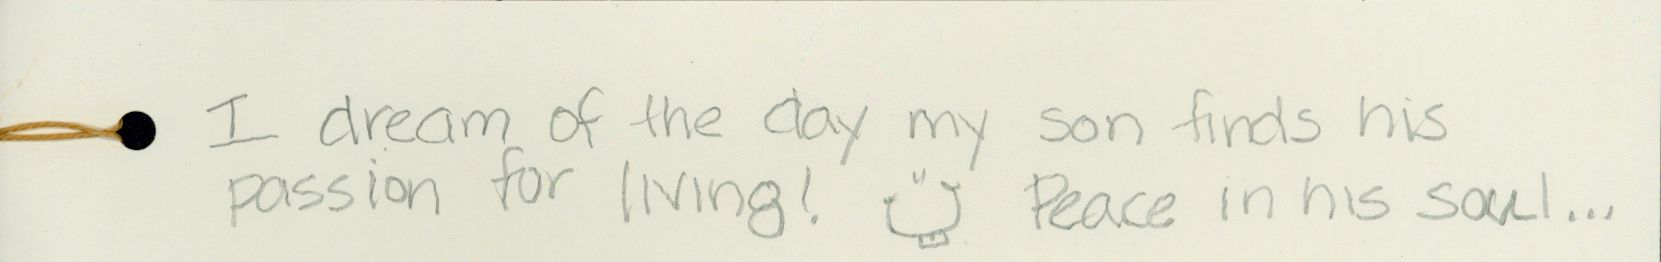 I dream of the day my son finds his
passion for living! Peace in his soul...